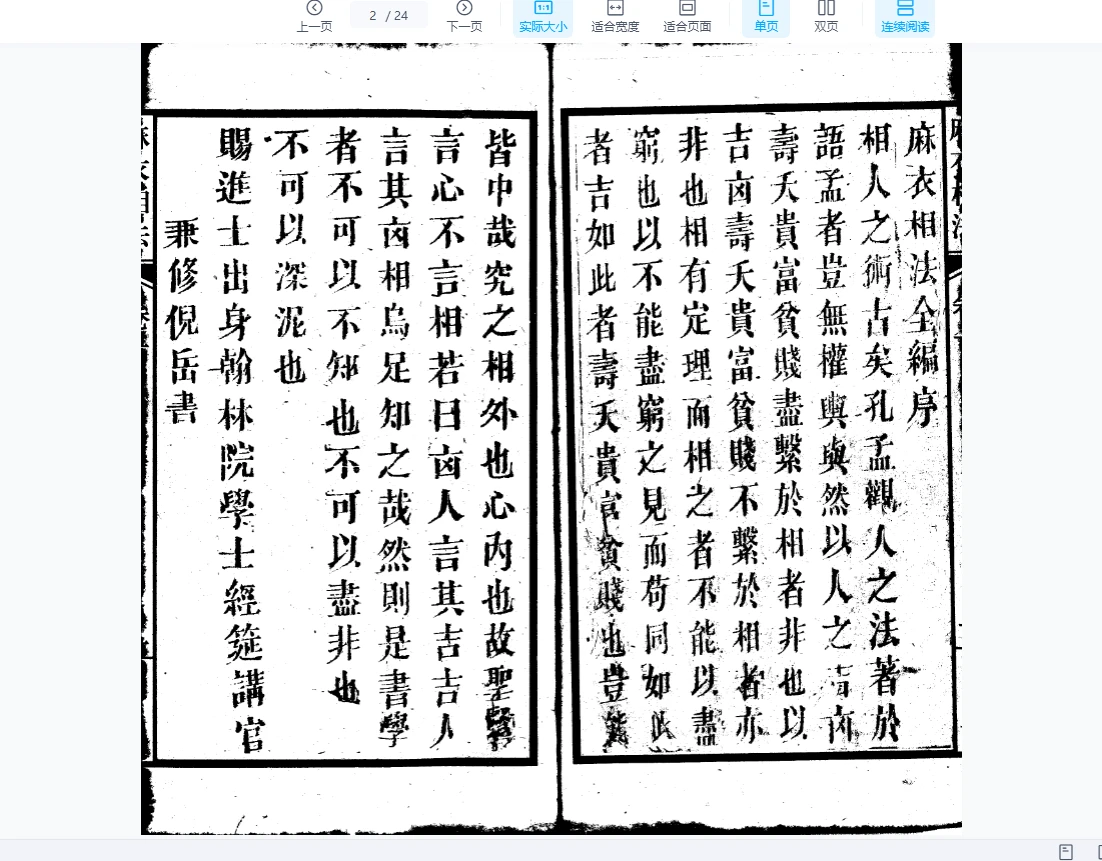 上一页 2 / 24 下一页 1:1 实际大小 适合宽度 适合页面 单页 双页 连续阅读
麻衣相法全編序
相人之術古矣孔孟觀人之法著於
語孟者豈無權輿與然以人之吉凶
壽夭貴富貧賤盡繫於相者非也以
吉凶壽夭貴富貧賤不繫於相者亦
非也相有定理而相之者不能以盡
窮也以不能盡窮之見而苟同如此
者吉如此者壽夭貴富貧賤也豈能
皆中哉究之相外也心內也故聖賢
言心不言相若曰凶人言其吉吉人
言其凶相烏足知之哉然則是書學
者不可以不知也不可以盡非也
不可以深泥也
賜進士出身翰林院學士經筵講官
兼修倪岳書